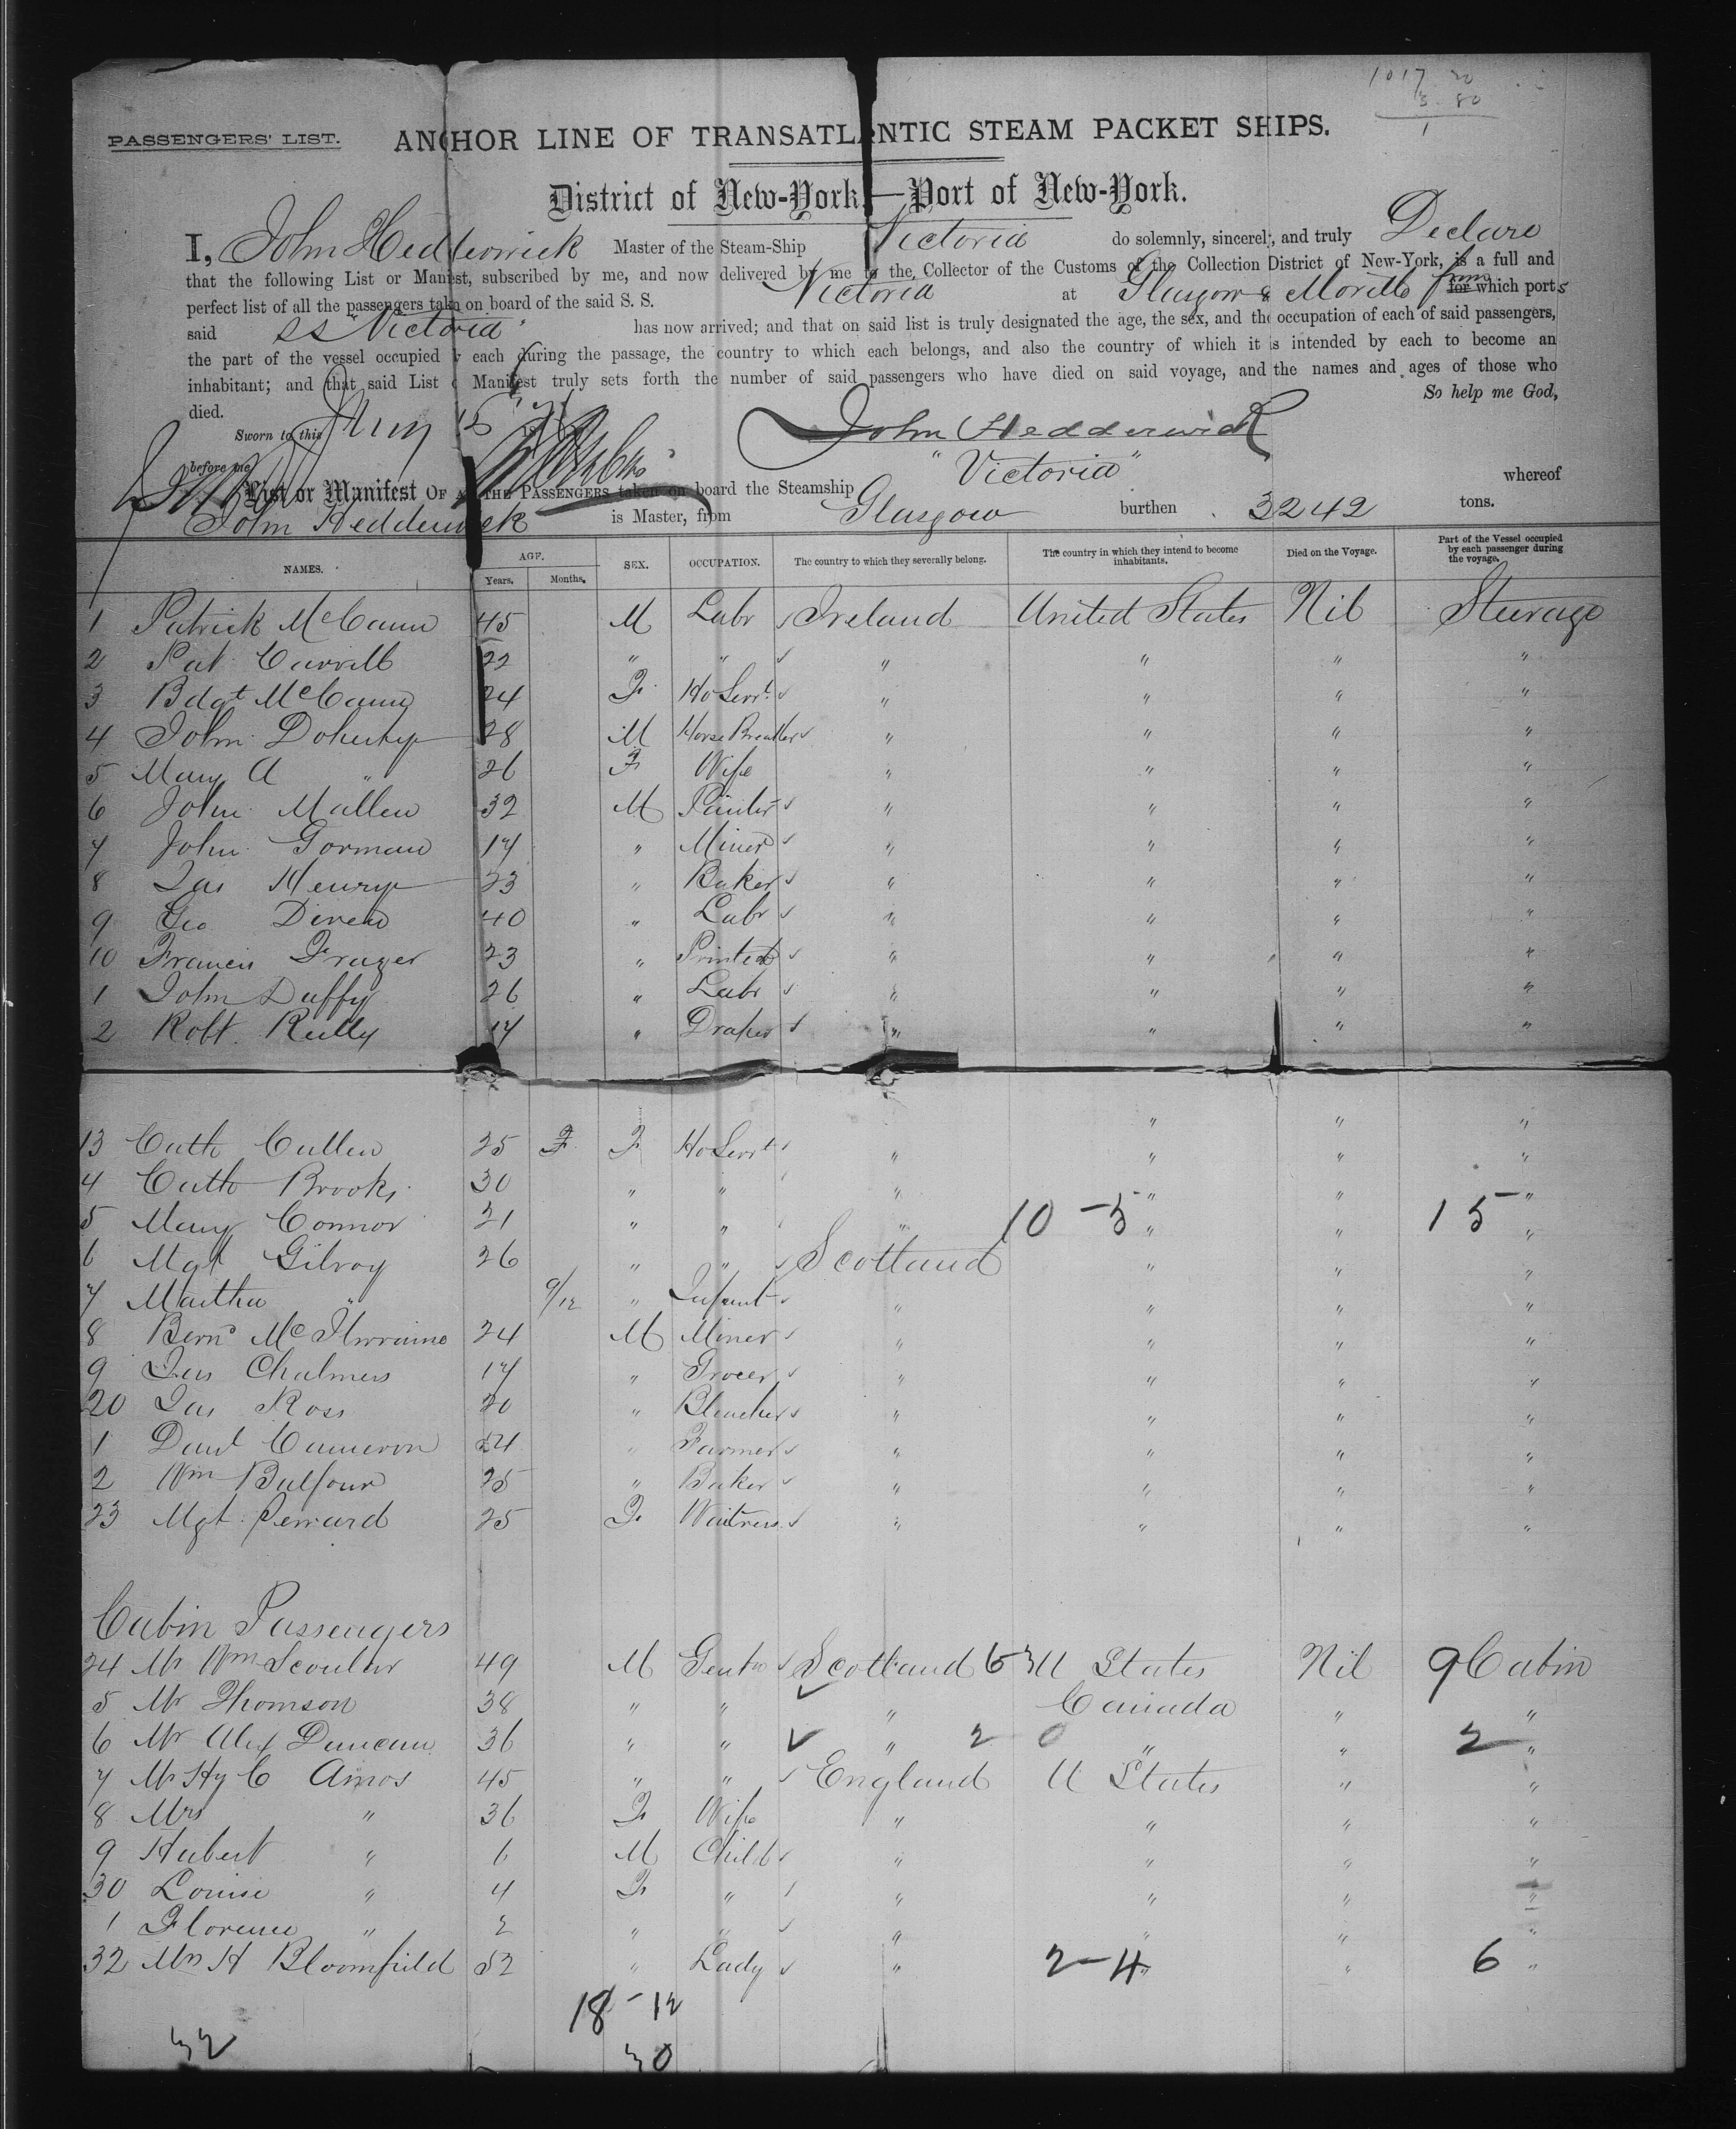 1017 20
3 80
1
PASSENGERS' LIST. ANCHOR LINE OF TRANSATLANTIC STEAM PACKET SHIPS.
District of New-York,—Port of New-York.
I, John Hedderwick Master of the Steam-Ship Victoria do solemnly, sincerely, and truly Declare
that the following List or Manifest, subscribed by me, and now delivered by me to the Collector of the Customs of the Collection District of New-York, is a full and
perfect list of all the passengers taken on board of the said S. S. Victoria at Glasgow & Moville from for which ports
said SS "Victoria" has now arrived; and that on said list is truly designated the age, the sex, and the occupation of each of said passengers,
the part of the vessel occupied by each during the passage, the country to which each belongs, and also the country of which it is intended by each to become an
inhabitant; and that said List or Manifest truly sets forth the number of said passengers who have died on said voyage, and the names and ages of those who
died. So help me God,
Sworn to this 15 18 John Hedderwick
before me
List or Manifest OF ALL THE PASSENGERS taken on board the Steamship "Victoria" whereof
John Hedderwick is Master, from Glasgow burthen 3242 tons.
NAMES. AGE. Years. Months. SEX. OCCUPATION. The country to which they severally belong. The country in which they intend to become inhabitants. Died on the Voyage. Part of the Vessel occupied by each passenger during the voyage.
1 Patrick McCann 45 M Labr Ireland United States Nil Steerage
2 Pat Carroll 22 " " " " " "
3 Bdgt McCann 24 F Ho Servt " " " "
4 John Doherty 28 M Horse Breaker " " " "
5 Mary A " 26 F Wife " " " "
6 John Mallen 32 M Painter " " " "
7 John Gorman 17 " Miner " " " "
8 Jas Henry 23 " Baker " " " "
9 Geo Diven 40 " Labr " " " "
10 Francis Frazer 23 " Printer " " " "
1 John Duffy 26 " Labr " " " "
2 Robt. Reilly 17 " Draper " " " "
13 Cath Cullen 25 F F Ho Servt " " " "
4 Cath Brooks 30 " " " " " "
5 Mary Connor 21 " " " 10 - 5 " " 15 "
6 Mgt Gilroy 26 " " Scotland " " "
7 Martha " 9/12 " Infant " " " "
8 Bernd McIlwraine 24 M Miner " " " "
9 Jas Chalmers 17 " Grocer " " " "
20 Jas Ross 20 " Bleacher " " " "
1 Danl Cameron 24 " Farmer " " " "
2 Wm Balfour 25 " Baker " " " "
23 Mgt. Perrard 25 F Waitress " " " "
Cabin Passengers
24 Mr Wm Scoular 49 M Gentn Scotland 6 3 U States Nil 9 Cabin
5 Mr Thomson 38 " " " Canada " "
6 Mr Alex Duncan 36 " " " 2 0 " " 2 "
7 Mr Hy C Amos 45 " " England U States " "
8 Mrs " 36 F Wife " " " "
9 Hubert " 6 M Child " " " "
30 Louise " 4 F " " " " "
1 Florence " 2 " " " " " "
32 Mrs H Bloomfield 52 " Lady " 2 - 4 " " 6 "
18 - 12
32 30